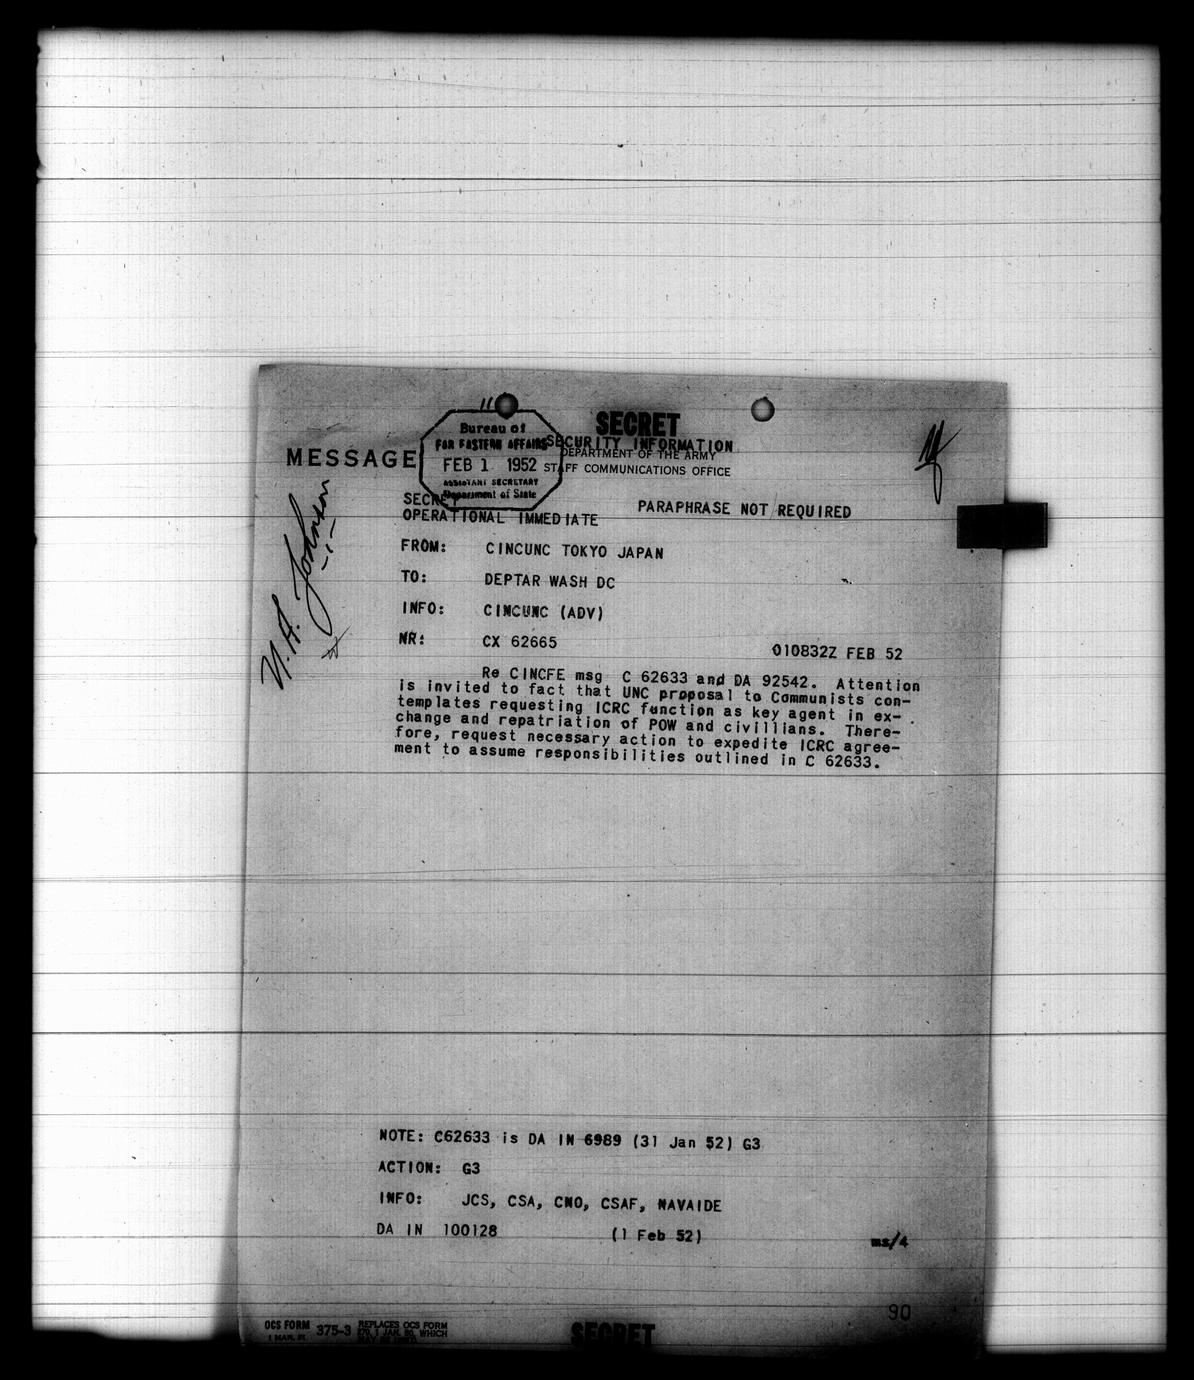 11
SECRET
Bureau of
FAR EASTERN AFFAIRS
SECURITY INFORMATION
DEPARTMENT OF THE ARMY
MESSAGE
FEB 1 1952
STAFF COMMUNICATIONS OFFICE
ASSISTANT SECRETARY
Department of State
SECRET
PARAPHRASE NOT REQUIRED
OPERATIONAL IMMEDIATE
FROM: CINCUNC TOKYO JAPAN
TO: DEPTAR WASH DC
INFO: CINCUNC (ADV)
NR: CX 62665 010832Z FEB 52
U.A. Johnson
Re CINCFE msg C 62633 and DA 92542. Attention
is invited to fact that UNC proposal to Communists con-
templates requesting ICRC function as key agent in ex-
change and repatriation of POW and civillians. There-
fore, request necessary action to expedite ICRC agree-
ment to assume responsibilities outlined in C 62633.
NOTE: C62633 is DA IN 6989 (31 Jan 52) G3
ACTION: G3
INFO: JCS, CSA, CNO, CSAF, NAVAIDE
DA IN 100128 (1 Feb 52)
ms/4
90
OCS FORM 375-3 REPLACES OCS FORM
1 MAR. 51 370, 1 JAN. 50, WHICH
SECRET